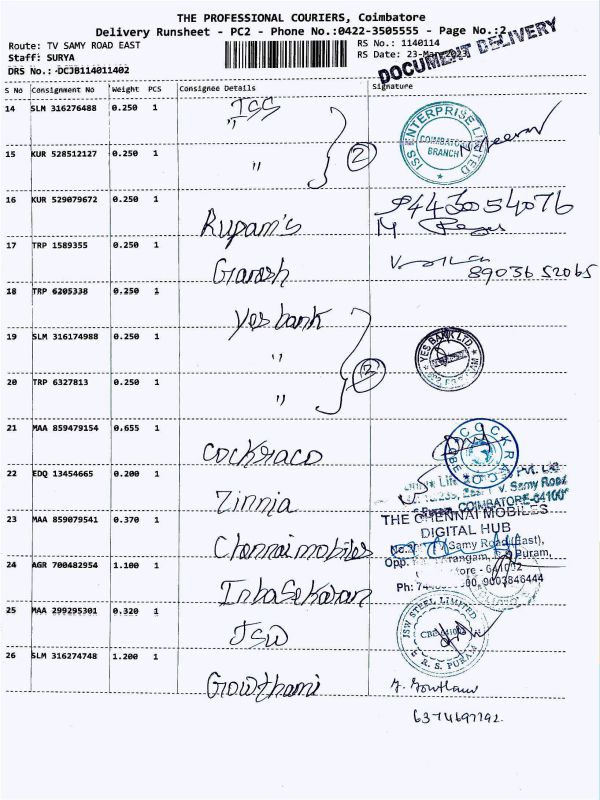 THE PROFESSIONAL COURIERS, Coimbatore
Delivery Runsheet - PC2 - Phone No.:0422-3505555 - Page No.:2
Route: TV SAMY ROAD EAST
RS No.: 1140114
Staff: SURYA
RS Date: 23-Mar-2023
DRS No.: DCJB114011402
DOCUMENT DELIVERY
S No Consignment No Weight PCS Consignee Details Signature
14 SLM 316276488 0.250 1 ISS
"
ISS ENTERPRISE LIMITED
COIMBATORE
BRANCH
15 KUR 528512127 0.250 1 " 2
16 KUR 529079672 0.250 1 Rupam's 9443054076
17 TRP 1589355 0.250 1 Ganesh 8903652065
18 TRP 6205338 0.250 1 Yes bank
19 SLM 316174988 0.250 1 "
YES BANK LTD.
20 TRP 6327813 0.250 1 " 3
21 MAA 859479154 0.655 1 Cockraco
COCKRACO
22 EDQ 13454665 0.200 1 Zinnia
Pvt. Ltd.
V. Samy Road
COIMBATORE-64100
23 MAA 859079541 0.370 1 Chennai mobiles
THE CHENNAI MOBILES
DIGITAL HUB
Samy Road (East),
Opp. Puram,
- 641002
Ph: 9003846444
24 AGR 700482954 1.100 1 Inbasekaran
25 MAA 299295301 0.320 1 JSW
JSW STEEL LIMITED
R. S. PURAM
26 SLM 316274748 1.200 1 Gowthami
6374697792